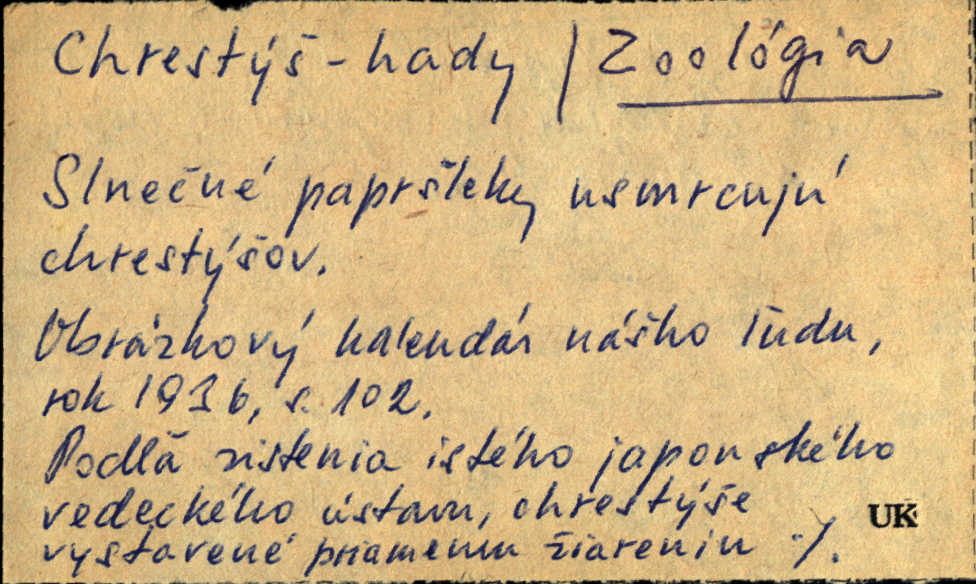 Chrestýš - hady / Zoológia
Slnečné papršleky usmrcujú
chrestýšov.
Obrázkový kalendár nášho ľudu,
rok 1936, s. 102.
Podľa zistenia istého japonského
vedeckého ústavu, chrestýše
vystavené priamemu žiareniu ./.
UK